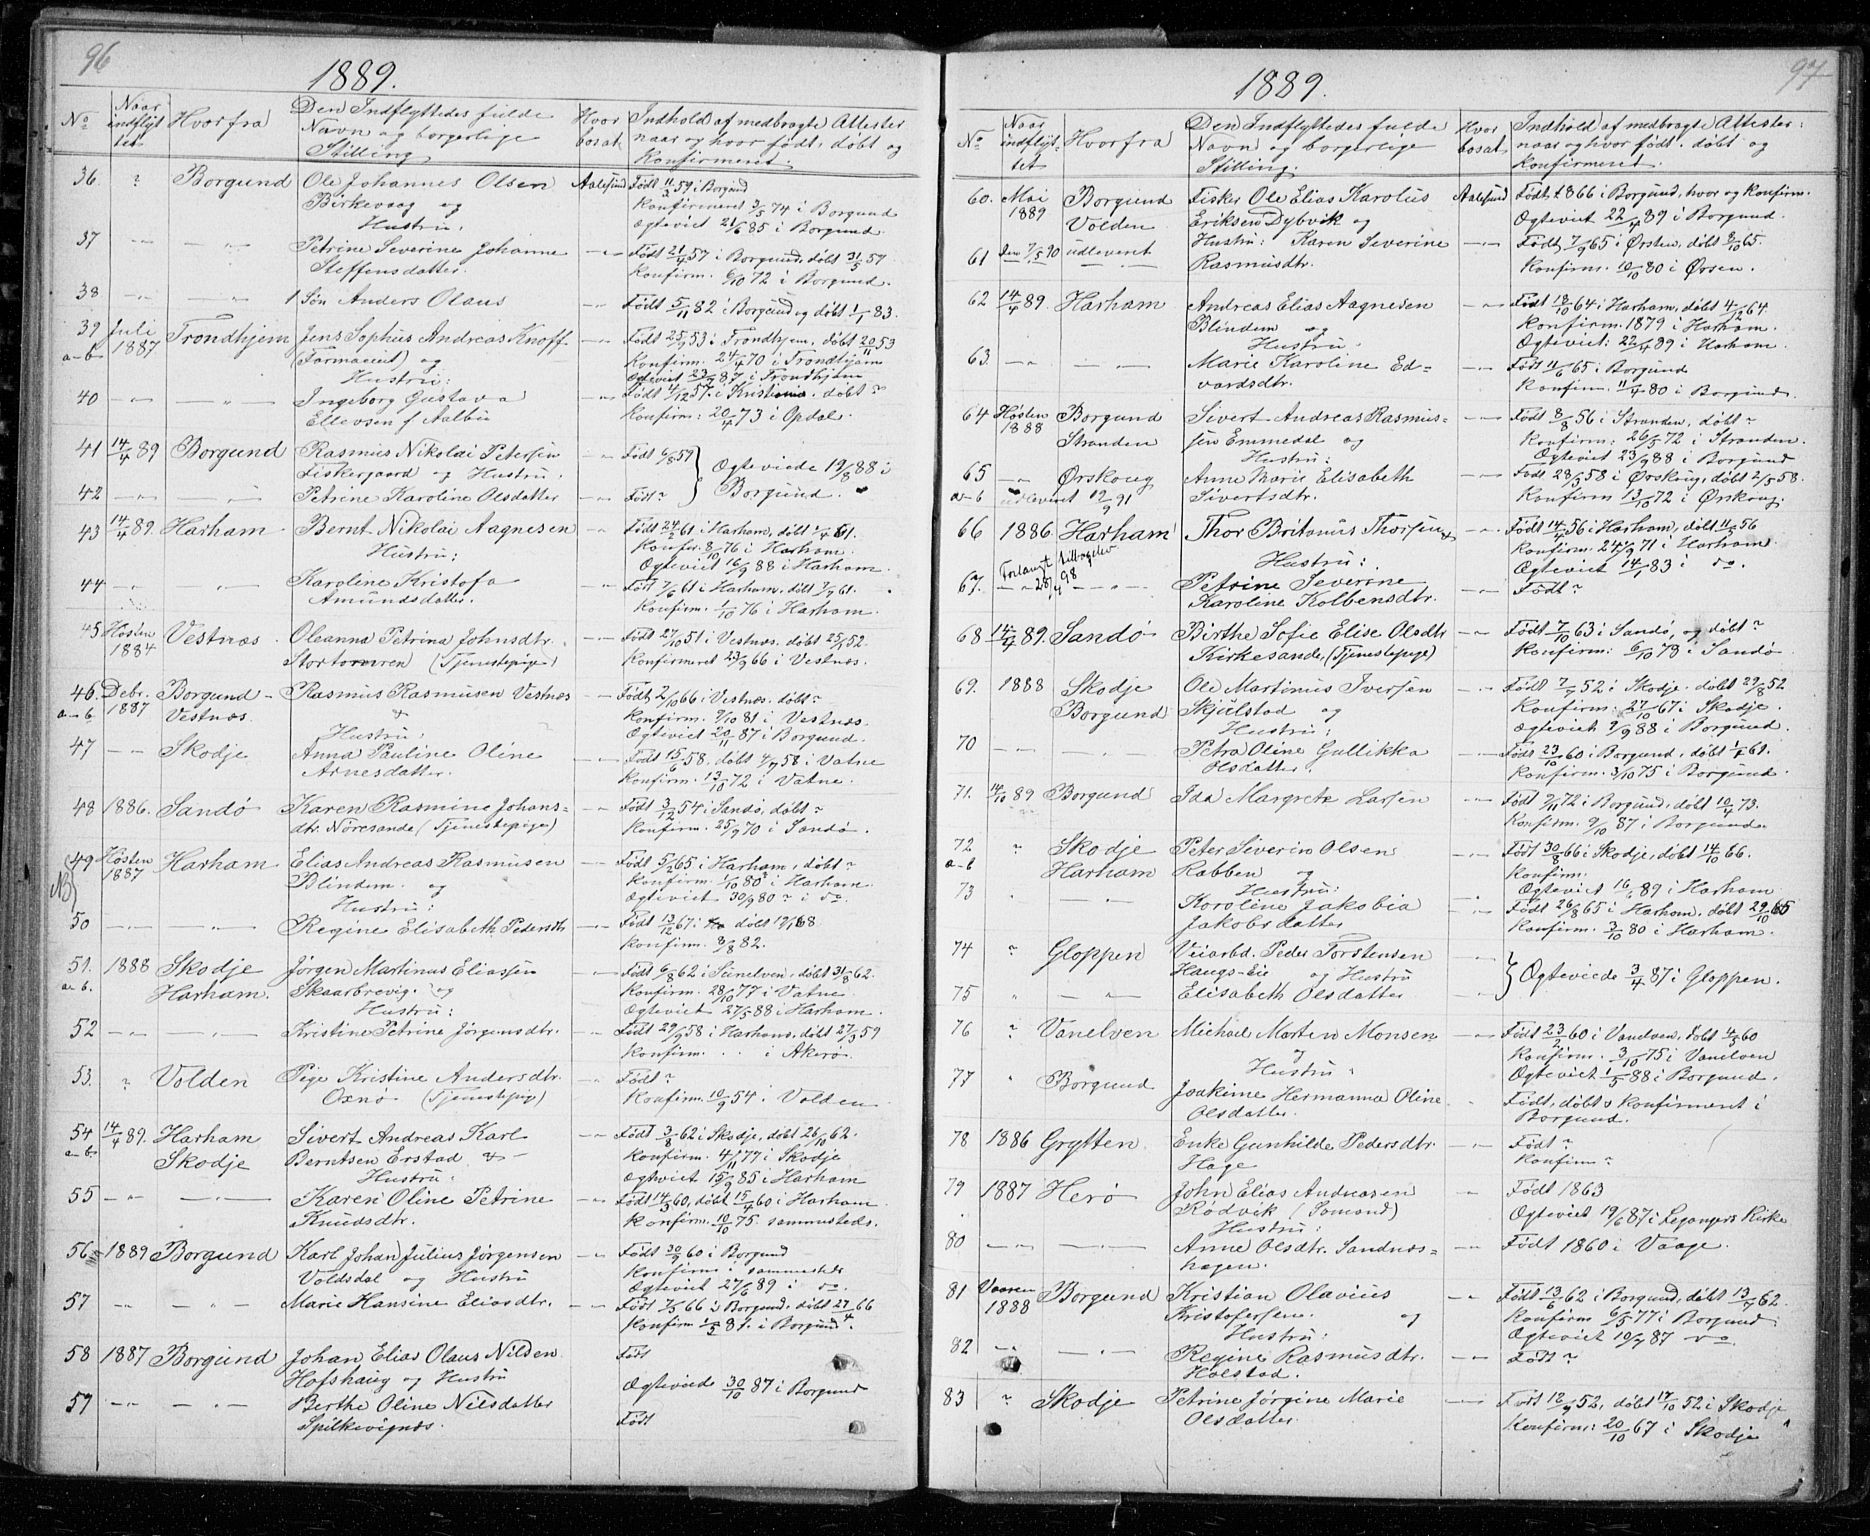 96
1889.
No Naar indflyttet Hvorfra Den Indflyttedes fulde Navn og borgerlige Stilling Hvor bosat Indhold af medbragte Attester naar og hvor født, døbt og Konfirmeret.
36. ? Borgund Ole Johannes Olsen Aalesund Født 11/3 59 i Borgund
Birkevaag og Konfirmeret 3/5 74 i Borgund
Hustru: Ogteviet 21/6 85 i Borgund.
37 Petrine Severine Johanne Født 21/4 57 i Borgund, døbt 31/5 57
Steffensdatter. Konfirm. 6/10 72 i Borgund.
38 1 Søn Anders Olaus Født 5/11 82 i Borgund og døbt 1/1 83.
39 Juli Trondhjem Jens Sophus Andreas Knoff Født 53 i Trondhjem, døbt 20/11 53
a-b 1887 (Farmaceut) og Konfirm. 24/4 70 i Trondhjem
Hustru: Ogteviet 87 i Trondhjem
40 Ingeborg Gustava Født 4/12 57. i Kristiania. døbt ?
Ellevsen f Aalbu Konfirm: 20/4 73 i Opdal.
41 14/4 89 Borgund Rasmus Nikolai Petersen Født 6/8 59
Fiskergaard og Hustru Ogteviede 19/8 88 i
42 Petrine Karoline Olsdatter Født ? Borgund.
43 14/4 89. Harham Bernt Nikolai Aagnesen Født 24/2 61 i Harham, døbt 1/4 61.
Hustru: Konfir. 8/10 76 i Harham.
Ogteviet 16/9 88 i Harham.
44 Karolene Kristofa Født 7/6 61 i Harham, døbt 7/7 61.
Amundsdatter. Konfirm. 1/10 76 i Harham.
45 Høsten Vestnæs Oleanna Petrina Johnsdtr. Født 27/10 51 i Vestnæs. døbt 25/1 52.
1884 (Tjenestepige) Konfirmeret 23/9 66 i Vestnæs.
46. Debr. Borgund Rasmus Rasmusen Vestnæs Født 2/10 66 i Vestnæs. døbt ?
a-b 1887 Vestnæs. & Konfirm. 9/10 81 i Vestnæs.
Hustru Ogteviet 20/11 87 i Borgund.
47 Skodje Anna Pauline Oline Født 15/6 58, døbt 4/7 58 i Vatne
Arnesdatter. Konfirm. 13/10 72 i Vatne.
48 1886. Sandø Karen Rasmine Johans- Født 3/12 54 i Sandø, døbt ?
dtr. Nøresande (Tjenestepige) Konfirm. 25/9 70 i Sandø.
49 Høsten Harham Elias Andreas Rasmusen Født 5/2 65 i Harham, døbt ?
NB 1887 Blindem. og Konfirm. 1/10 80 i Harham.
Hustru: Ogteviet 30/9 80 ? i do.
50 Regine Elisabeth Pedersdtr Født 13/12 67. døbt 12/1 68
Konfirm. 8/8 82.
51. 1888 Skodje Jørgen Martinus Eliassen Født 6/8 62 i Sunelven, døbt 31/8 62.
a-b. Harham. Skaarbrevig. og Konfirm. 28/10 77 i Vatne
Hustru: Ogteviet 27/5 88 i Harham.
52 Kristine Petrine Jørgensdtr. Født 29/9 58 i Harham, døbt 27/3 59
Konfirm. . . i Akerø.
53. ? Volden Pige Kristine Andersdtr. Født ?
Oxnø (Tjenestepig) Konfirm. 10/9 54. i Volden
54 14/4 89. Harham Sivert Andreas Karl Født 3/8 62 i Skodje, døbt 26/10 62.
a-b Skodje Berntsen Erstad & Konfirm. 4/11 77 i Skodje
Hustru: Ogteviet 15/9 85 i Harham
55 Karen Oline Petrine Født 14/3 60, døbt 15/4 60 i Harham
Knudsdtr. Konfirm. 10/10 75 sammesteds.
56 1889 Borgund Karl Johan Julius Jørgensen Født 30/9 60 i Borgund
Voldsdal og Hustru Konfirm: i sammesteds
Ogteviet 27/6 89 i do.
57 Marie Hansine Eliasdtr. Født 7/3 66 i Borgund, døbt 27/4 66
Konfirm 1/5 81. i Borgund.
58 1887 Borgund Johan Elias Olaus Nilsen Født
Hofshaug og Hustru Ogteviede 30/10 87 i Borgund
57 Berthe Oline Nilsdatter Født
Spilkevignæs.
97
1889.
No Naar indflyttet Hvorfra Den Indflyttedes fulde Navn og borgerlige Stilling Hvor bosat Indhold af medbragte Attester: naar og hvor født, døbt og Konfirmeret.
60. Mai Borgund Fisker Ole Elias Karolus Aalesund Født 1866 i Borgund, hvor og Konfirm.
1889 Volden Eriksen Dybvik og Ogteviet 22/4 89 i Borgund.
61 Den 7/5 90 udleveret Hustru: Karen Severine Født 7/9 65 i Ørsten, døbt 8/10 65.
Rasmusdtr. Konfirm. 10/10 80 i Ørsen.
62 14/4 89. Harham Andreas Elias Aagnesen Født 18/10 64 i Harham, døbt 4/12 64
Blindem og Konfirm. 1879 i Harham.
Hustru: Ogteviet: 22/4 89 i Harham.
63. Marie Karoline Ed- Født 11/6 65 i Borgund
vardsdtr. Konfirm. 11/4 80 i Borgund.
64 Høsten Borgund Sivert Andreas Rasmus- Født 8/8 56 i Stranden, døbt ?
1888 Stranden sen Emmedal og Konfirm: 26/5 72 i Stranden.
Hustru: Ogteviet 23/9 88 i Borgund
65 Ørskoug Anne Marie Elisabeth Født 28/3 58 i Ørskoug, døbt 2/5 58.
a-b udleveret 12/9 91 Sivertsdtr. Konfirm 13/10 72 i Ørskoug.
66 1886 Harham Thor Britanus Thorsen & Født 14/4 56 i Harham, døbt 11/5 56
Forlangt tilbagelev 28/4 98 Hustru: Konfirm. 24/9 71 i Harham.
Ogteviet 14/1 83 i do.
67. Petrine Severine Født ?
Karoline Kolbensdtr.
68 14/4 89. Sandø Birthe Sofie Elise Olsdtr Født 7/10 63 i Sandø, og døbt ?
Kirkesande. (Tjenestepige) Konfirm: 6/10 78 i Sandø
69. 1888 Skodje Ole Martinus Iversen Født 7/7 52 i Skodje. døbt 29/8 52
Borgund Skjelstad og Konfirm: 27/10 67 i Skodje.
Hustru: Ogteviet 9/9 88 i Borgund.
70 Petra Oline Gullikka Født 23/10 60 i Borgund, døbt 61.
Olsdatter. Konfirm. 3/10 75 i Borgund.
71. 14/10 89 Borgund Ida Margrete Larsen Født 9/11 72 i Borgund, døbt 10/4 73.
Konfirm. 9/10 87 i Borgund.
72 ? Skodje Peter Severin Olsen Født 30/8 66 i Skodje, døbt 14/10 66.
a-b Harham Rabben og
Hustru: Ogteviet 16/6 89 i Harham
73 Karoline Jakobia Født 26/8 65 i Harham. døbt 29/10 65
Jakobsdatter Konfirm. 3/10 80 i Harham.
74 ? Gloppen Veiarbd. Peder Torstensen
Haugs-Eie og Hustru Ogteviede 3/4 87 i Gloppen.
75 Elisabeth Olsdatter
76 ? Vanelven Michael Morten Monsen Født 23/2 60 i Vanelven, døbt 4/3 60
& Konfirm. 3/10 75 i Vanelven
Hustru Ogteviet 1/5 88 i Borgund.
77 Borgund Joakime Hermanna Oline Født, døbt & konfirmeret i
Olsdatter. Borgund.
78 1886 Grytten Enke Gunhilde Pedersdtr. Født ?
Hage Konfirm ?
79 1887 Herø John Elias Andreasen Født 1863
Rødvik (Sømand) Ogteviet 19/6 87 i Leganger Kirke
Hustru:
80 Anne Olsdtr. Sandnæs- Født 1860 i Vaage.
hagen.
81 Vaaren Borgund Kristian Olavius Født 13/6 62 i Borgund, døbt 13/7 62.
1888 Kristofersen og Konfirm 6/5 77 i Borgund:
Hustru: Ogteviet 10/7 87 do
82 Regine Rasmusdtr. Født ?
Holstad.
83 ? Skodje Petrine Jørgine Marie Født 12/9 52, døbt 17/10 52 i Skodje
Olsdatter. Konfirm: 20/10 67 i Skodje